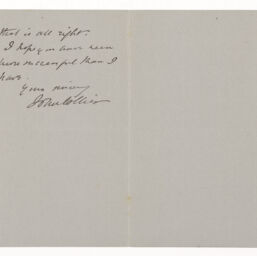 that is all right.
I hope you have been
more successful than I
have.
Yours sincerely
John Collier